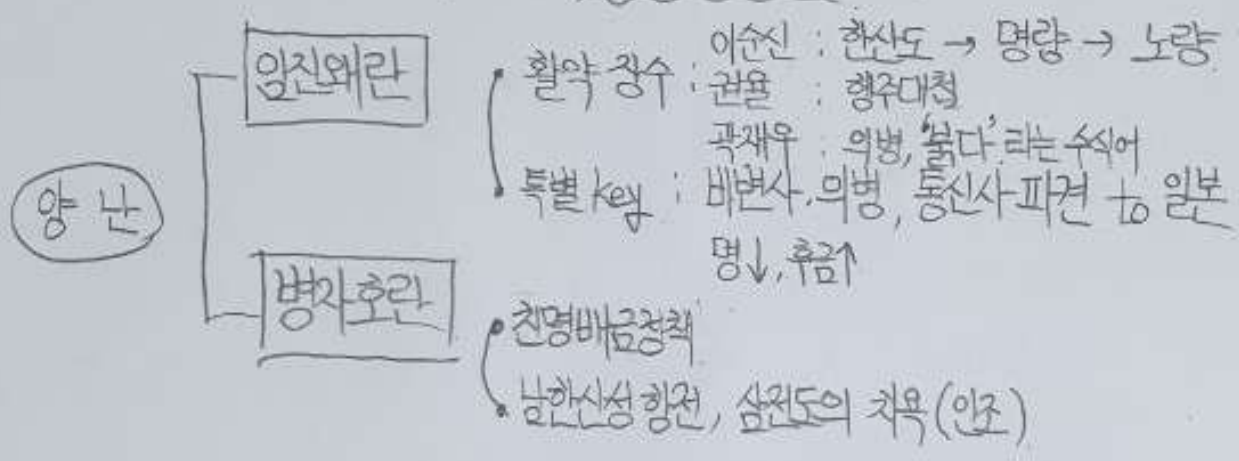 양 난
임진왜란
활약 장수 : 이순신 : 한산도 → 명량 → 노량
권율 : 행주대첩
곽재우 : 의병, '붉다' 라는 수식어
특별 key : 비변사, 의병, 통신사 파견 to 일본
명↓, 후금↑
병자호란
친명배금정책
남한산성 항전, 삼전도의 치욕 (인조)